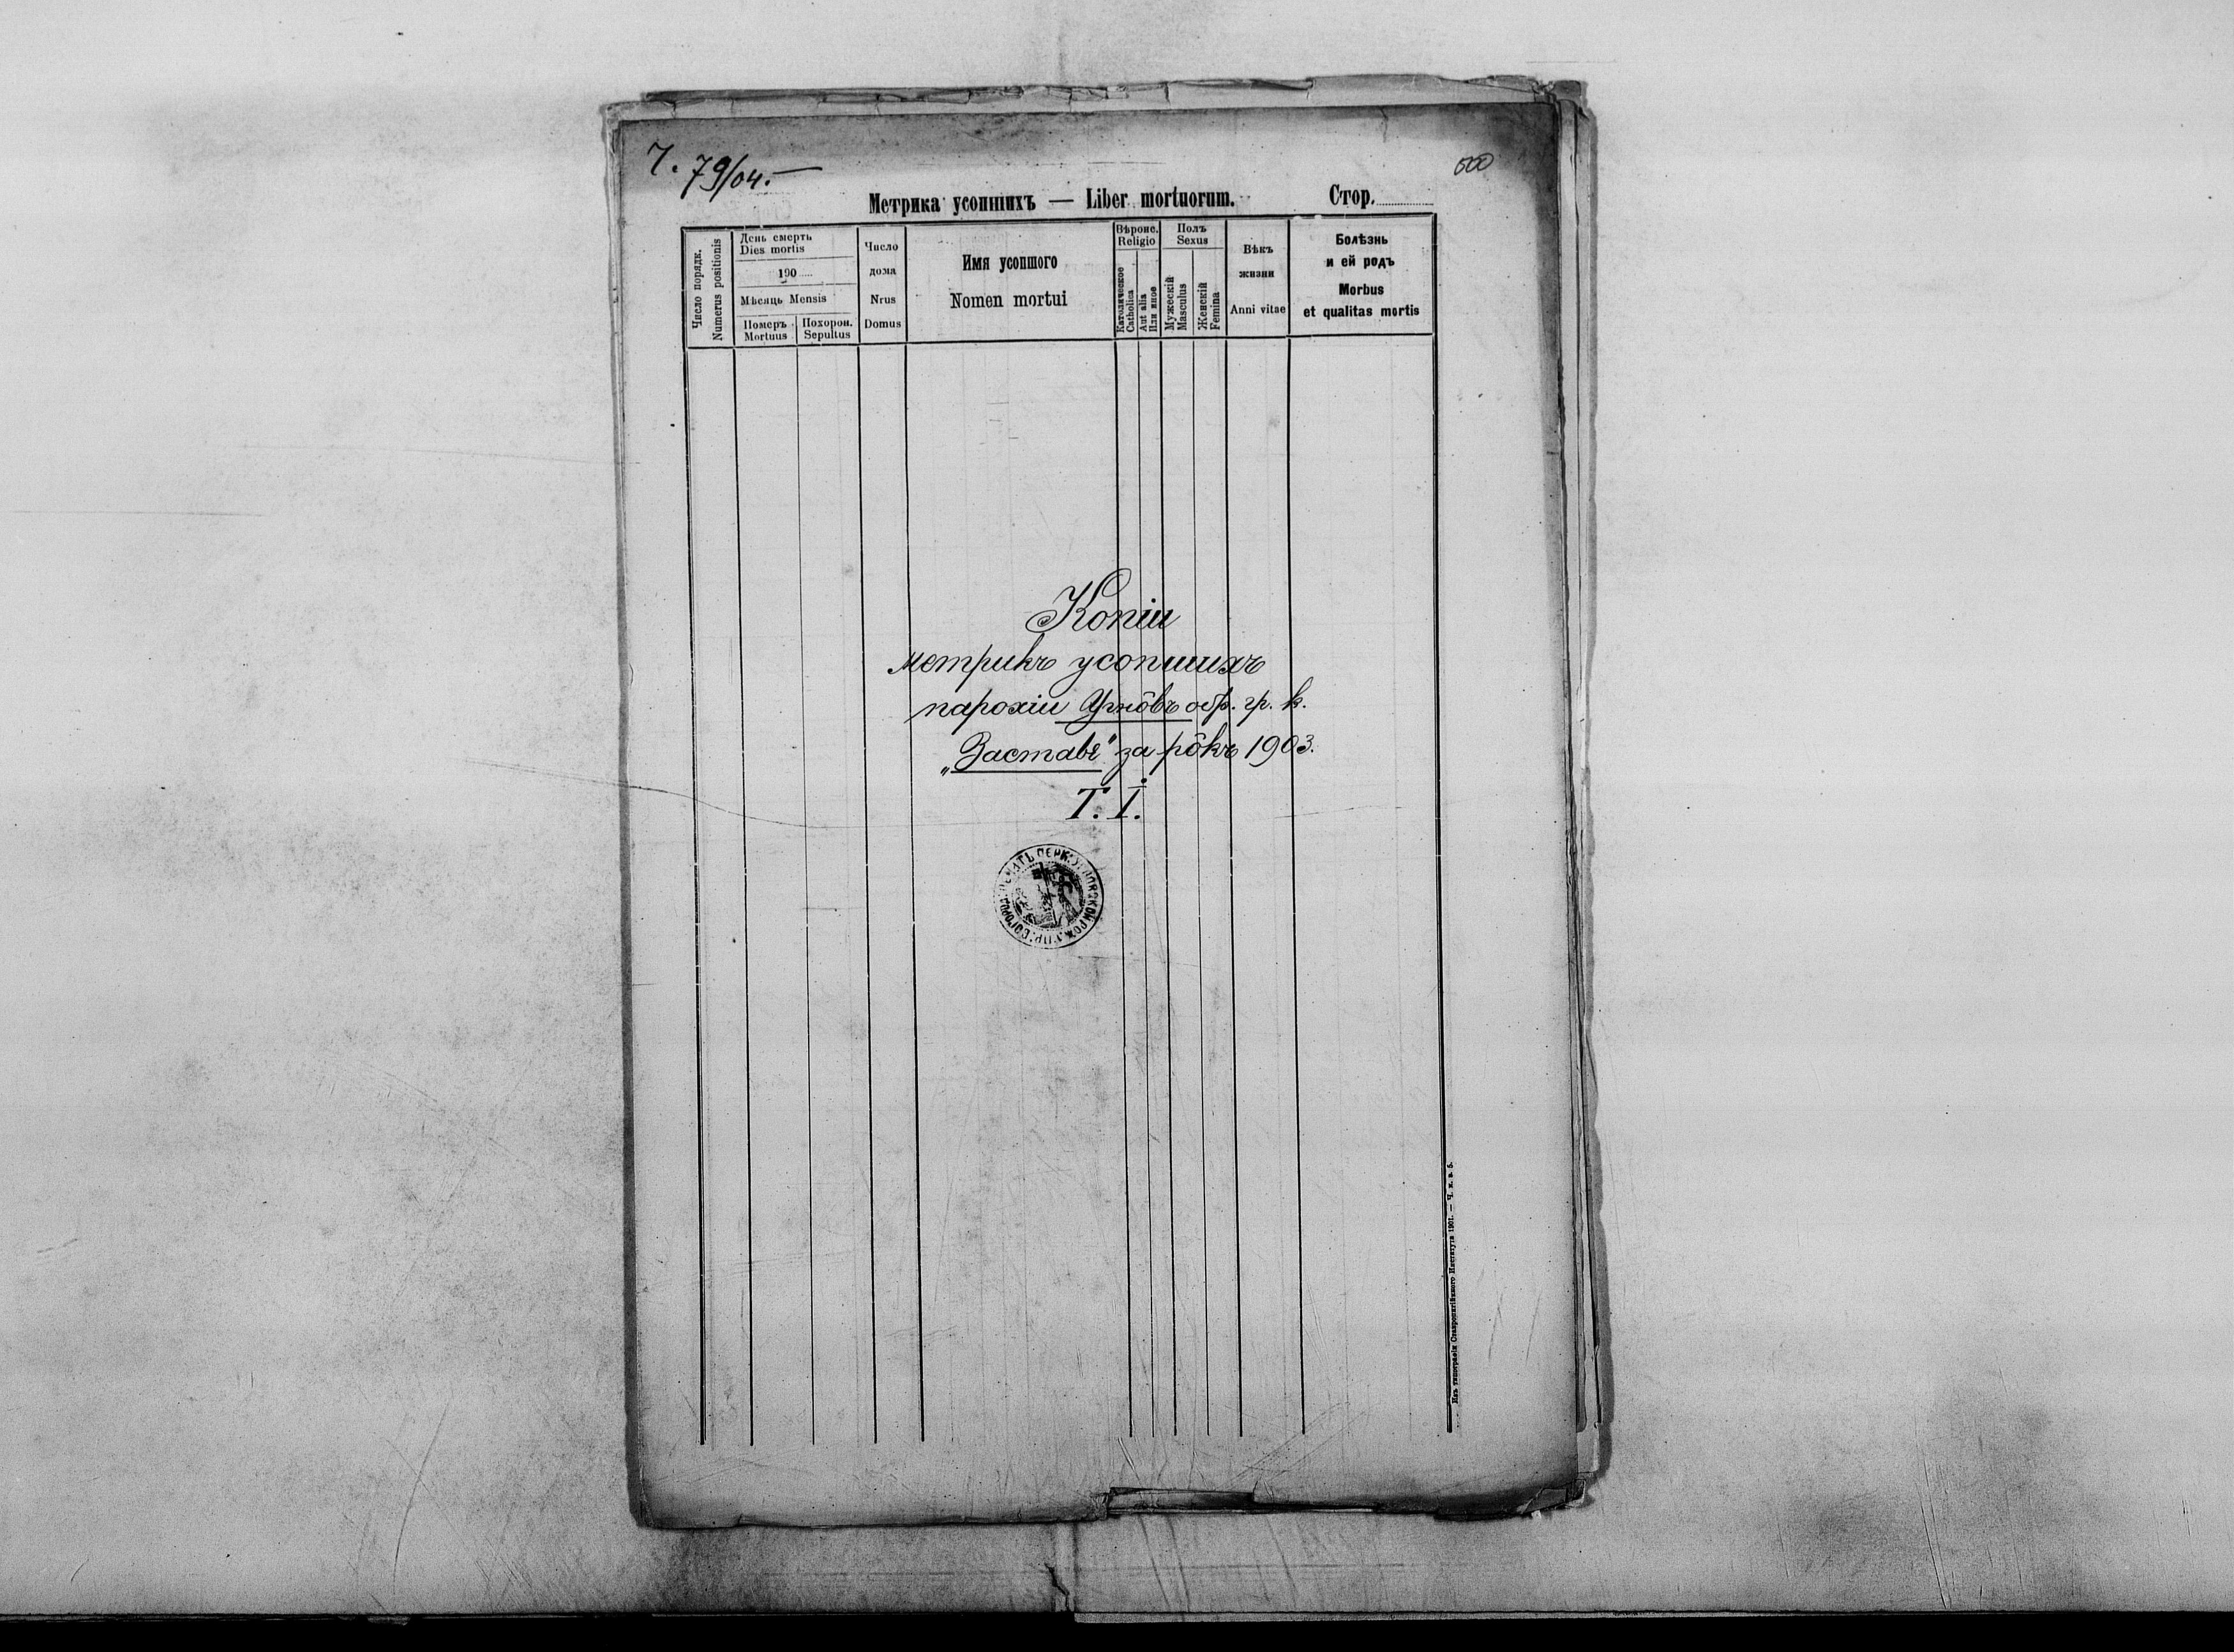 Ч. 79/04.
550
Метрика усопшихъ — Liber mortuorum.
Стор.
Число порядк.
Numerus positionis
День смерть
Dies mortis
190
Мѣсяць Mensis
Померъ
Mortuus
Похорон.
Sepultus
Число
дома
Nrus
Domus
Имя усопшого
Nomen mortui
Вѣроис.
Religio
Католическое
Catholica
Aut alia
Или иное
Полъ
Sexus
Мужескій
Masculus
Женскій
Femina
Вѣкъ
жизни
Anni vitae
Болѣзнь
и ей родъ
Morbus
et qualitas mortis
Копіи
метрикъ усопшихъ
парохіи Угнôвъ обр. гр. к.
„Заставє" за рôкъ 1903.
Т. I.
Изъ типографіи Ставропигійского Института 1901. — Ч. к. в. 5.